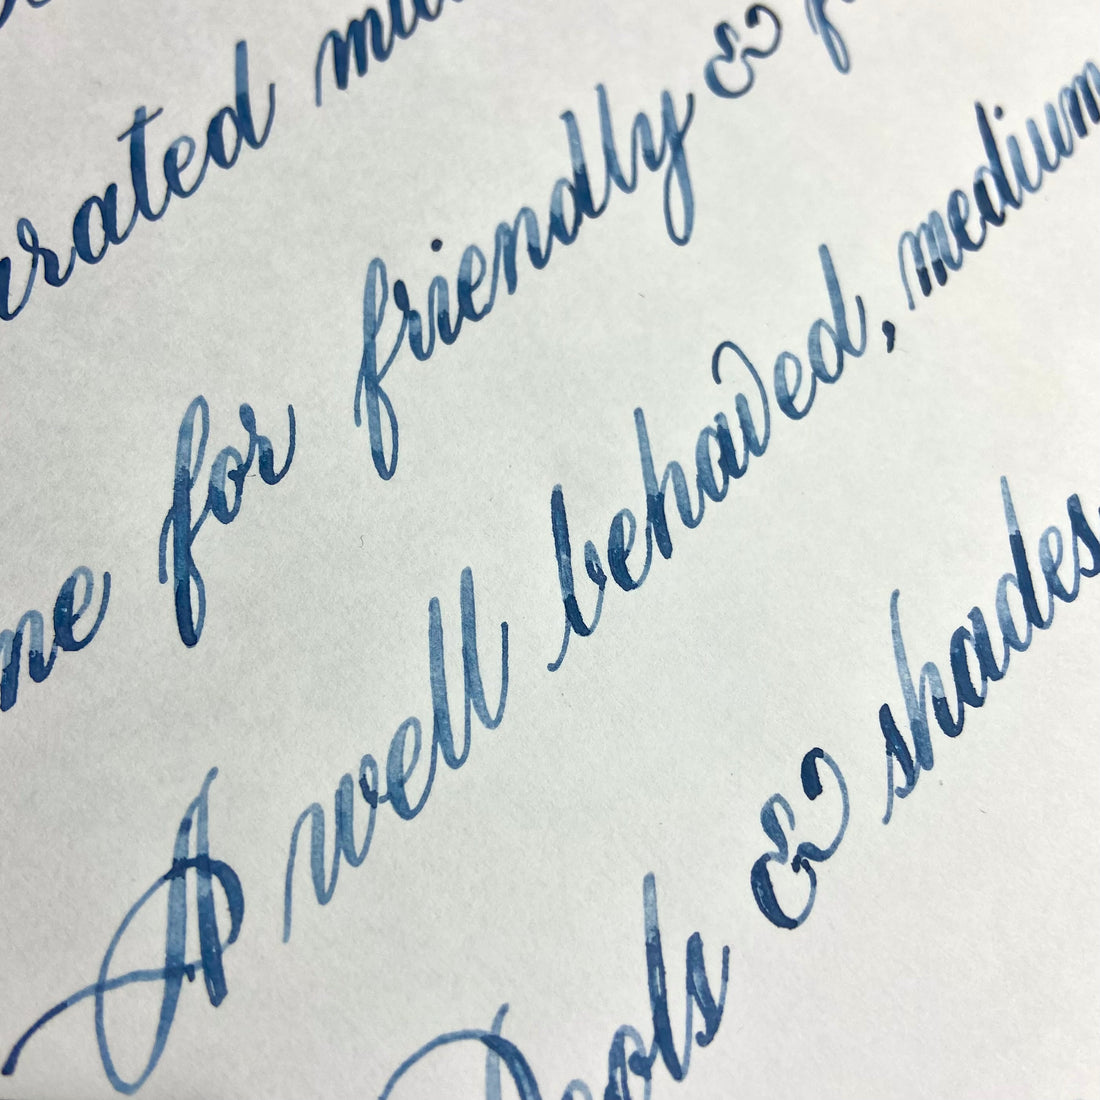 rated
ne for friendly &
A well behaved, medium
Pools & shades